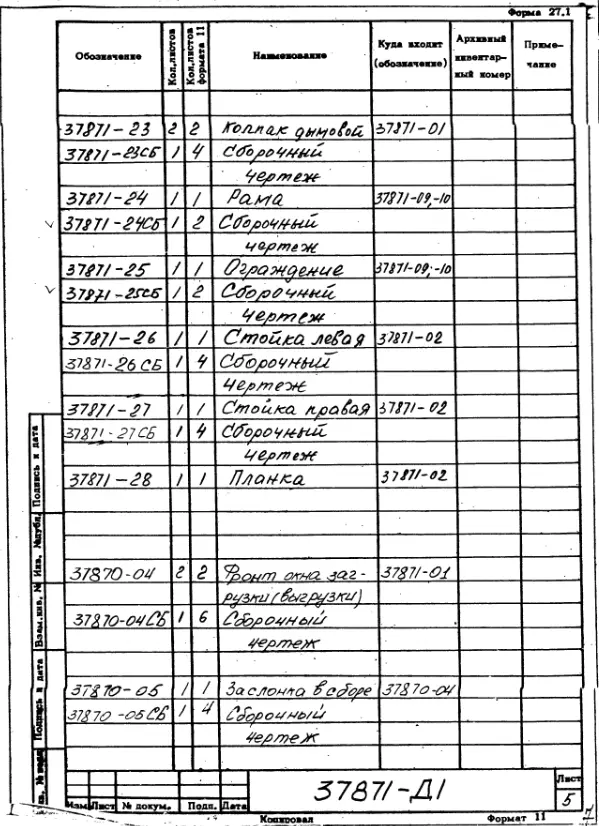 Форма 27.1
Обозначение Кол.листов Кол.листов формата 11 Наименование Куда входит (обозначение) Архивный инвентарный номер Примечание
37871-23 2 2 Колпак дымовой 37871-01
37871-23СБ 1 4 Сборочный
чертеж
37871-24 1 1 Рама 37871-09,-10
37871-24СБ 1 2 Сборочный
чертеж
37871-25 1 1 Ограждение 37871-09,-10
37871-25СБ 1 2 Сборочный
чертеж
37871-26 1 1 Стойка левая 37871-02
37871-26СБ 1 4 Сборочный
чертеж
37871-27 1 1 Стойка правая 37871-02
37871-27СБ 1 4 Сборочный
чертеж
37871-28 1 1 Планка 37871-02
37870-04 2 2 Фронт окна заг-
рузки (выгрузки) 37871-01
37870-04СБ 1 6 Сборочный
чертеж
37870-05 1 1 Заслонка в сборе 37870-04
37870-05СБ 1 4 Сборочный
чертеж
Подпись и дата
Инв. № дубл.
Взам.инв. №
Подпись и дата
Изм Лист № докум. Подп. Дата
37871-Д1
Лист
5
Копировал Формат 11